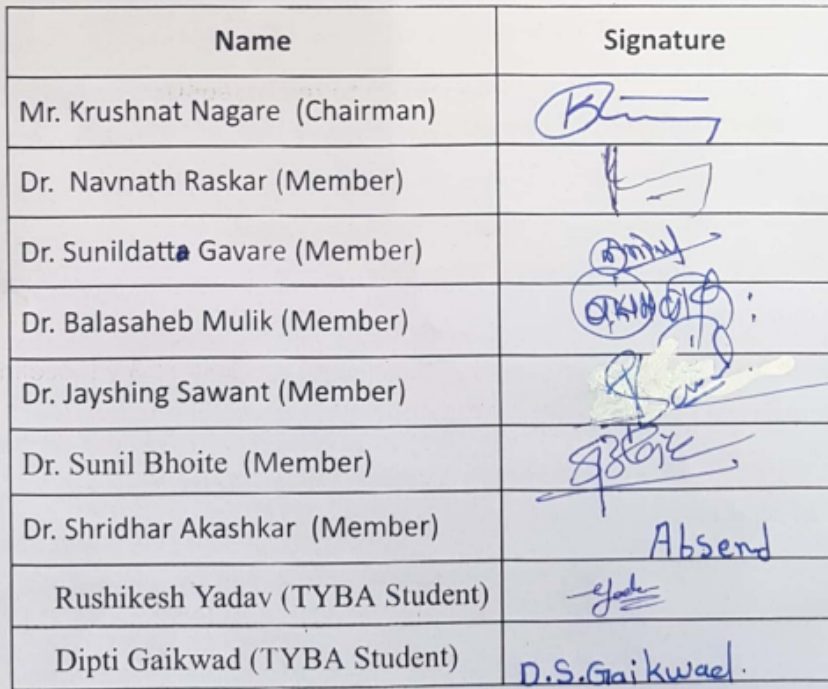 Name Signature
Mr. Krushnat Nagare (Chairman)
Dr. Navnath Raskar (Member)
Dr. Sunildatta Gavare (Member)
Dr. Balasaheb Mulik (Member)
Dr. Jayshing Sawant (Member)
Dr. Sunil Bhoite (Member)
Dr. Shridhar Akashkar (Member) Absend
Rushikesh Yadav (TYBA Student)
Dipti Gaikwad (TYBA Student) D.S.Gaikwad.